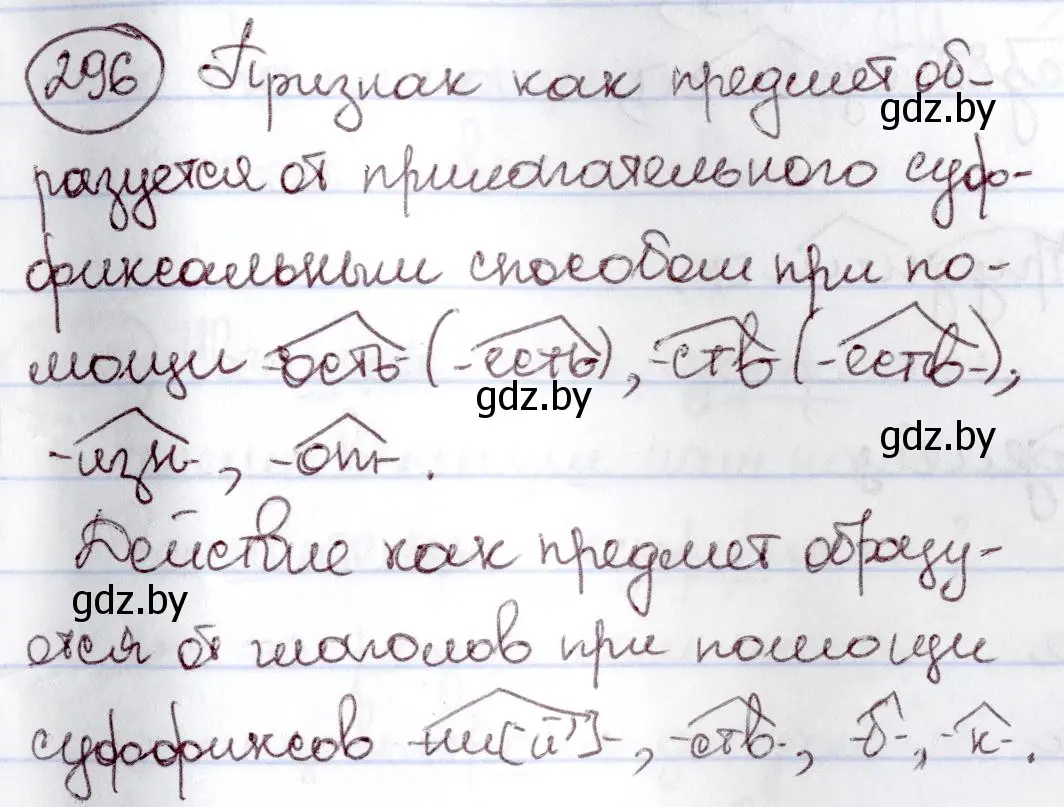 296 Признак как предмет об-
gdz.by
разуется от прилагательного суф-
фиксальным способом при по-
мощи -ость- (-есть), -ств- (-еств-),
gdz.by
-изн-, -от-.
gdz.by
Действие как предмет образу-
gdz.by
ется от глаголов при помощи
суффиксов -ни[й']-, -ств-, -б-, -к-.